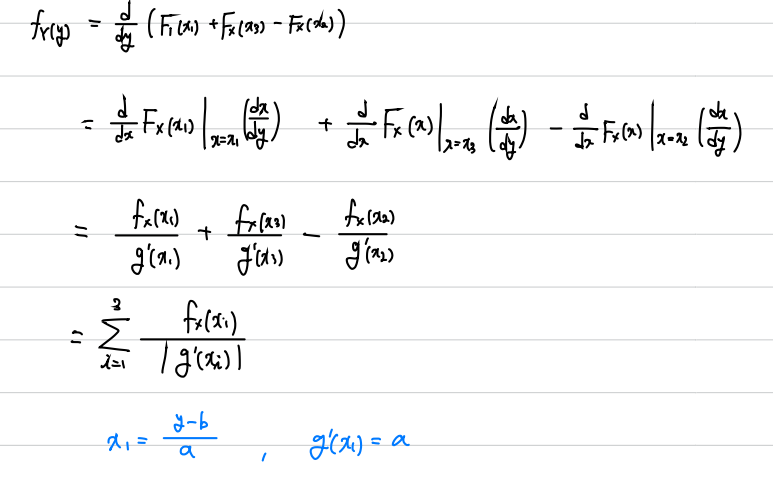 f_Y(y) = d/dy (F_1(x_1) + F_x(x_3) - F_x(x_2))
= d/dx F_x(x_1) |_{x=x_1} (dx/dy) + d/dx F_x(x) |_{x=x_3} (dx/dy) - d/dx F_x(x) |_{x=x_2} (dx/dy)
= f_x(x_1)/g'(x_1) + f_x(x_3)/g'(x_3) - f_x(x_2)/g'(x_2)
= Σ_{i=1}^{3} f_x(x_i)/|g'(x_i)|
x_1 = (y-b)/a , g'(x_1) = a